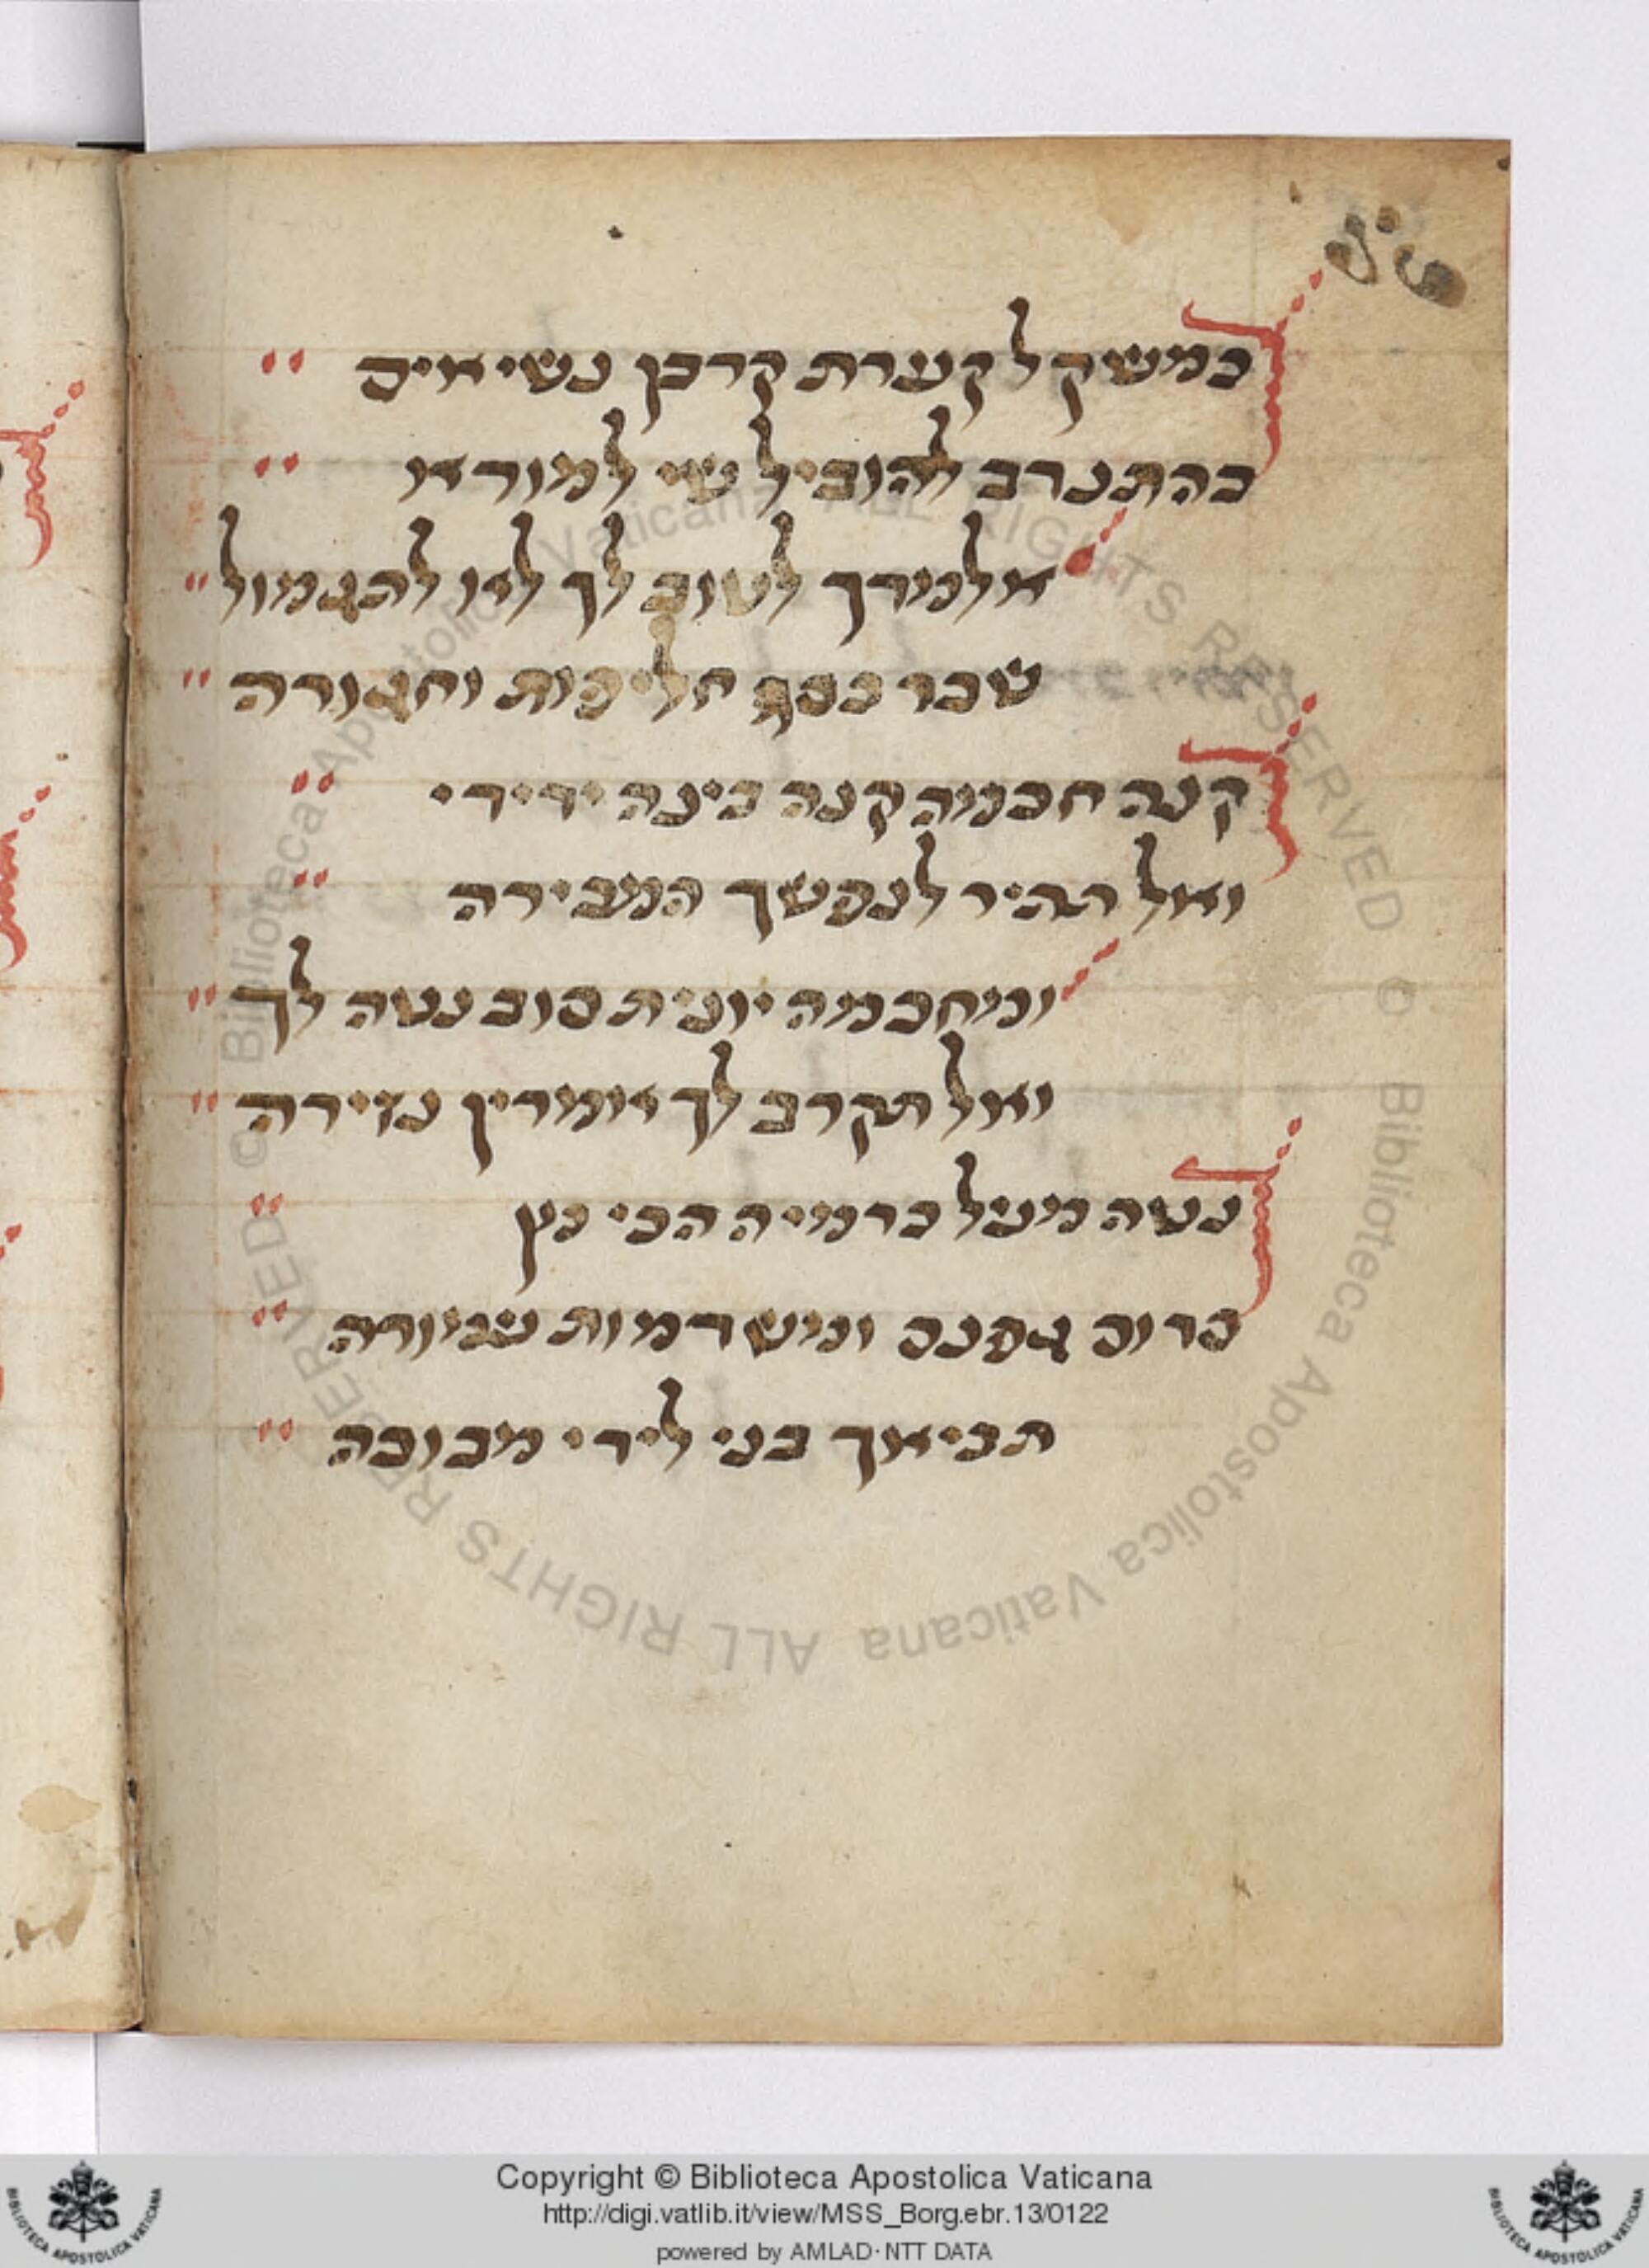 כמשקל קערת קרבן נשיאים
בהתנדב להוביל שי למוראו
אלמדך לטוב לך לא להגמול
שכר כסף חליפות וחגורה
קנה חכמה קנה בינה ידידי
ואל תהיר לנפשך
ומחכמה יונית סוב נטה לך
ואל תקרב לך אומרין גזירה
נטה מעל כרמיה הכי נץ
סרוס גפנם ומשדמות עמורה
תביאך בני לידי מבוכה
Copyright © Biblioteca Apostolica Vaticana
http://digi.vatlib.it/view/MSS_Borg.ebr.13/0122
powered by AMLAD·NTT DATA